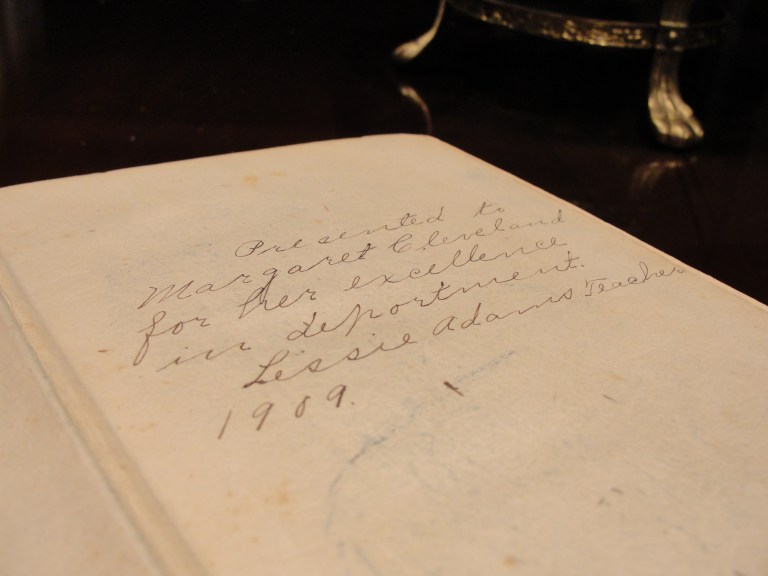 Presented to
Margaret Cleveland
for her excellence
in deportment.
Lessie Adams Teacher
1909.